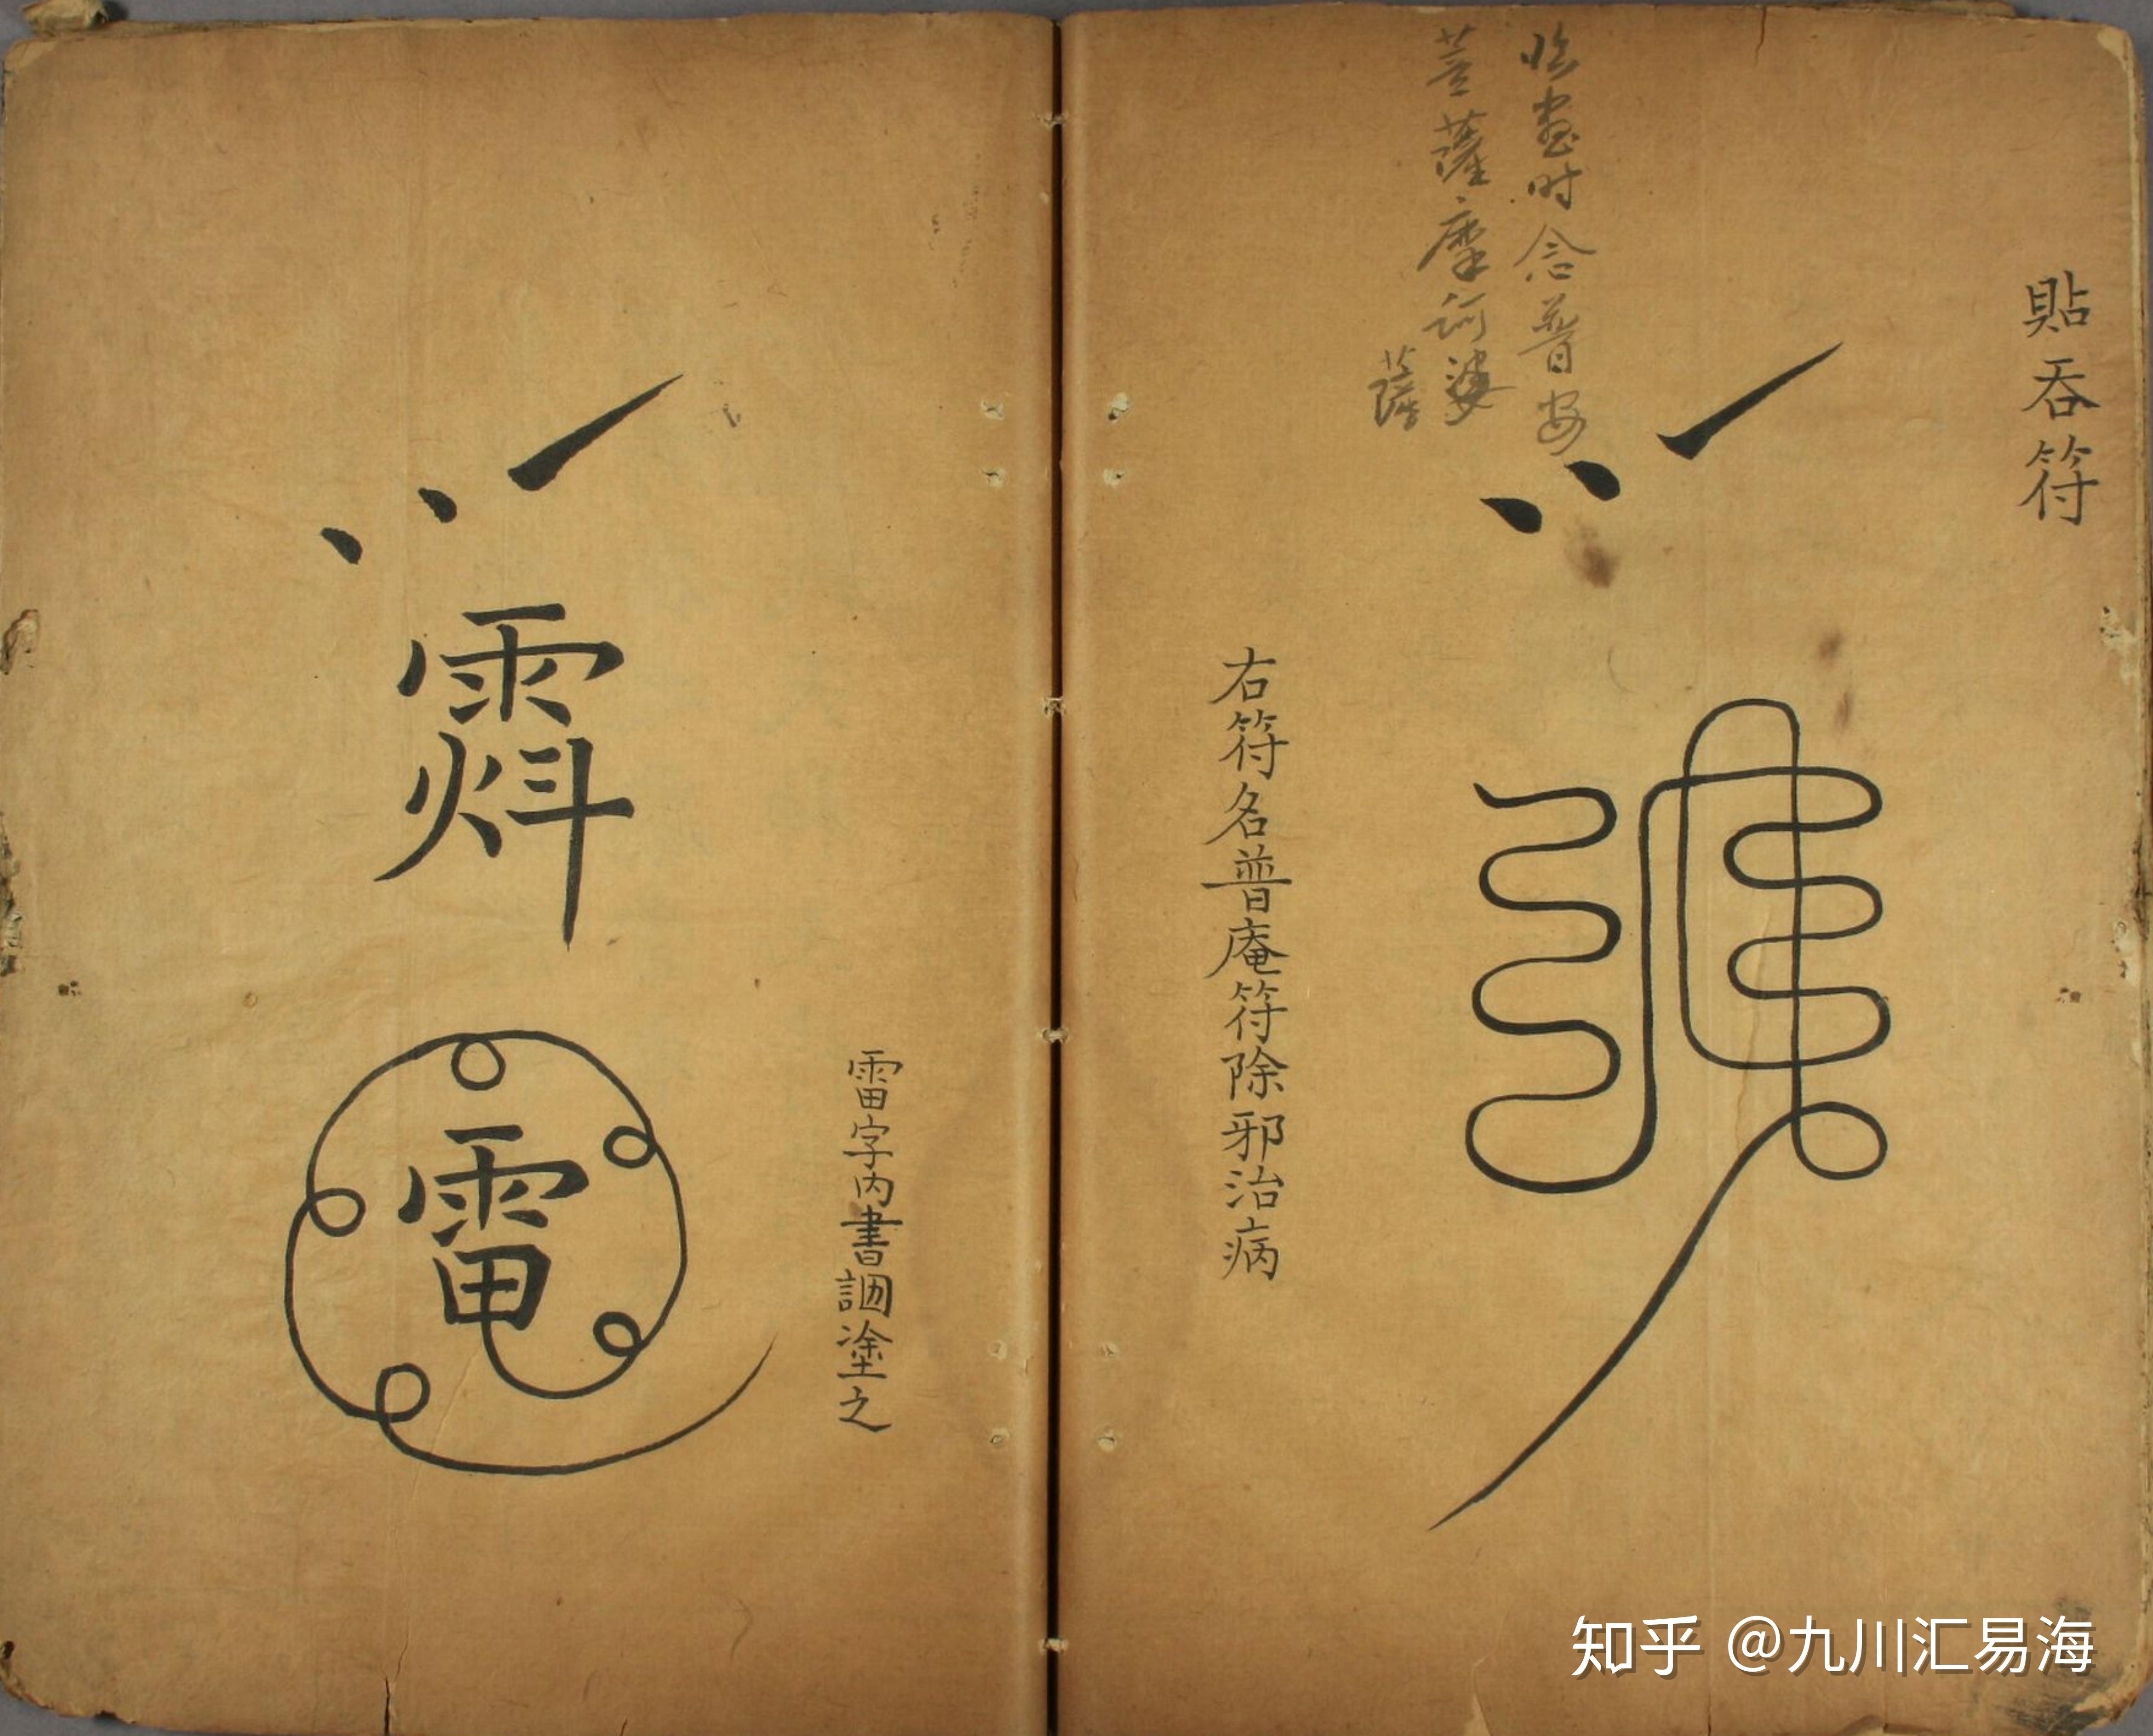 貼吞符
临画时念普安
菩薩摩訶婆
薩
右符名普庵符除邪治病
雷字內書 塗之
雷
知乎 @九川汇易海